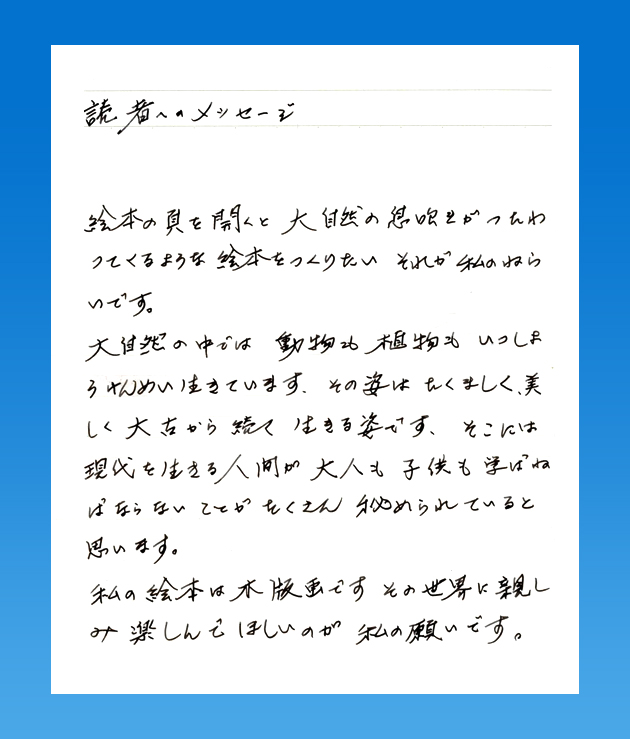 読者へのメッセージ
絵本の頁を開くと 大自然の息吹きがつたわ
ってくるような絵本をつくりたい それが私のねら
いです。
大自然の中では 動物も植物も いっしょ
うけんめい生きています、その姿は たくましく、美
しく 大古から続く 生きる姿です、 そこには
現代を生きる人間が 大人も 子供も 学ばね
ばならない ことが たくさん 秘められていると
思います。
私の絵本は木版画です その世界に親し
み 楽しんで ほしいのが 私の願いです。